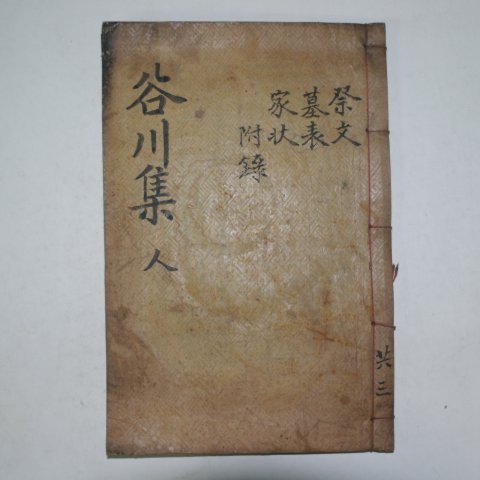 谷川集 人
祭文
墓表
家狀
附錄
共三